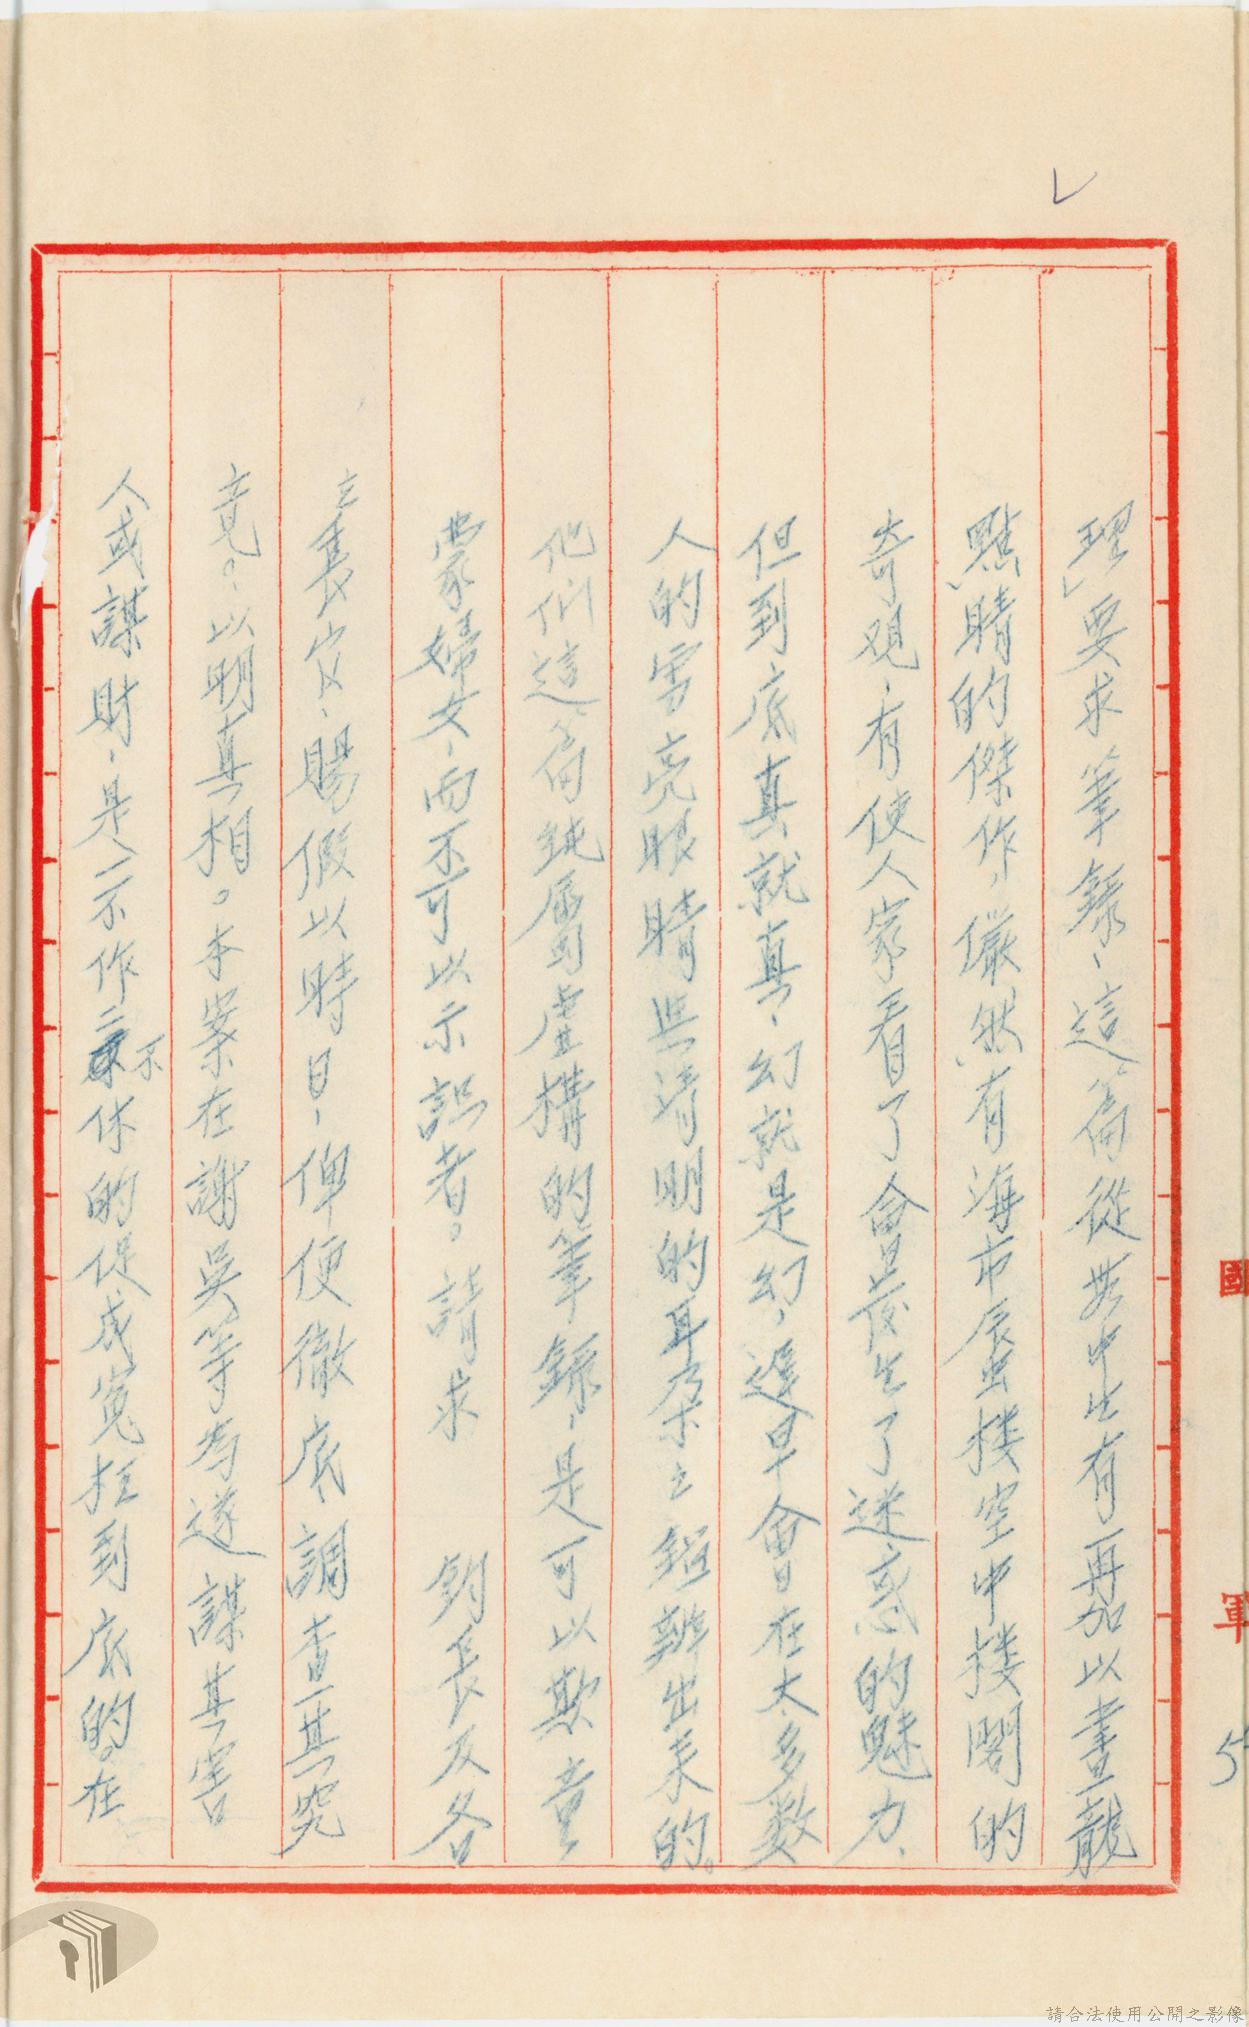 理」要求筆錄、這篇從無中生有再加以畫龍
點睛的傑作，儼然有海市蜃樓空中樓閣的
奇观、有使人家看了會發生了迷惑的魅力、
但到底真就真、幻就是幻，遲早會在太多数
人的雪亮眼睛與清明的耳朵之鎚辨出来的。
他们這篇純屬虛構的筆錄、是可以欺童
蒙婦女、而不可以示識者。請求　鈞長及各
主審長官、賜假以時日、俾便徹底調查其究
竟。以明真相。本案在謝吳等為遂謀其害
人或謀財、是不作二不休的促成寃枉到底的。在
國
軍
5
請合法使用公開之影像